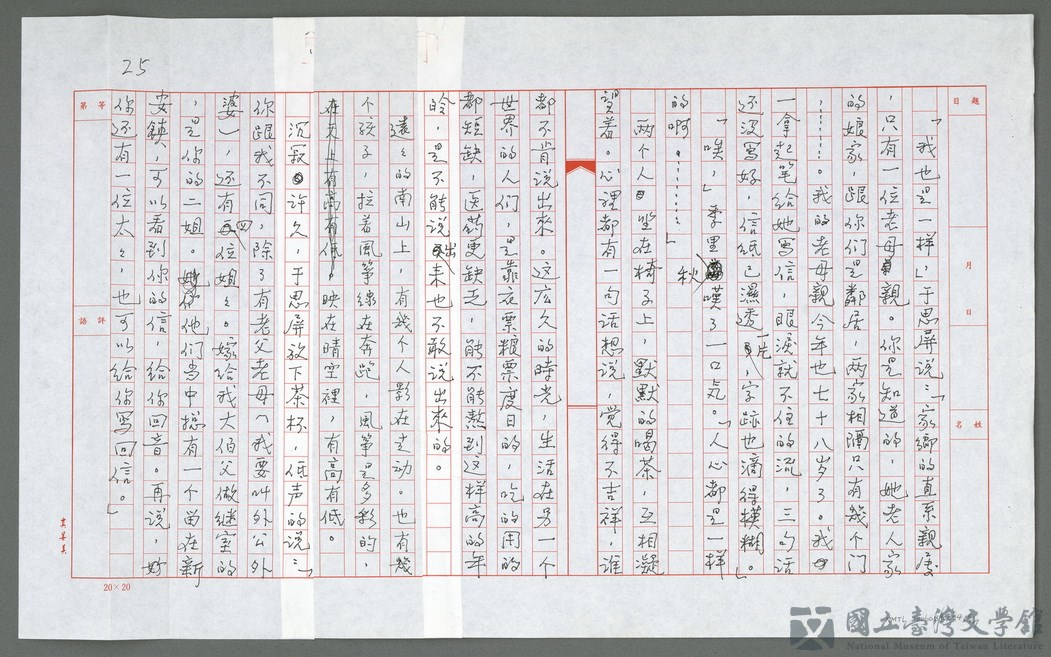 25
題目
月 日
姓名
「我也是一样」，于思屏说：「家鄉的直系親屬
，只有一位老母親。你是知道的，她老人家
的娘家，跟你们是鄰居，两家相隔只有幾个门
，………。我的老母親今年也七十八岁了。我
一拿起笔给她写信，眼淚就不住的流，三句话
还没写好，信紙已濕透一片，字跡也滴得模糊。」
「唉，」季里秋嘆了一口气。「人心都是一样
的啊。………」
两个人坐在椅子上，默默的喝茶，互相凝
望着。心裡都有一句话想说，觉得不吉祥，谁
都不肯说出來。这広久的時光，生活在另一个
世界的人们，是靠衣票粮票度日的，吃的用的
都短缺，医药更缺乏，能不能熬到这样高的年
龄，是不能说出来也不敢说出來的。
遠々的南山上，有幾个人影在走动。也有幾
个孩子，拉着風箏線在奔跑，風箏是多彩的，
在天上有高有低。映在晴空裡，有高有低。
沉寂许久，于思屏放下茶杯，低声的说：「
你跟我不同，除了有老父老母（我要叫外公外
婆），还有四位姐々。嫁给我大伯父做继室的
，是你的二姐。他们当中総有一个留在新
安鎮，可以看到你的信，给你回音。再说，
你还有一位太々，也可以给你写回信。」
等第
評語
20×20
國立臺灣文學館
National Museum of Taiwan Literature